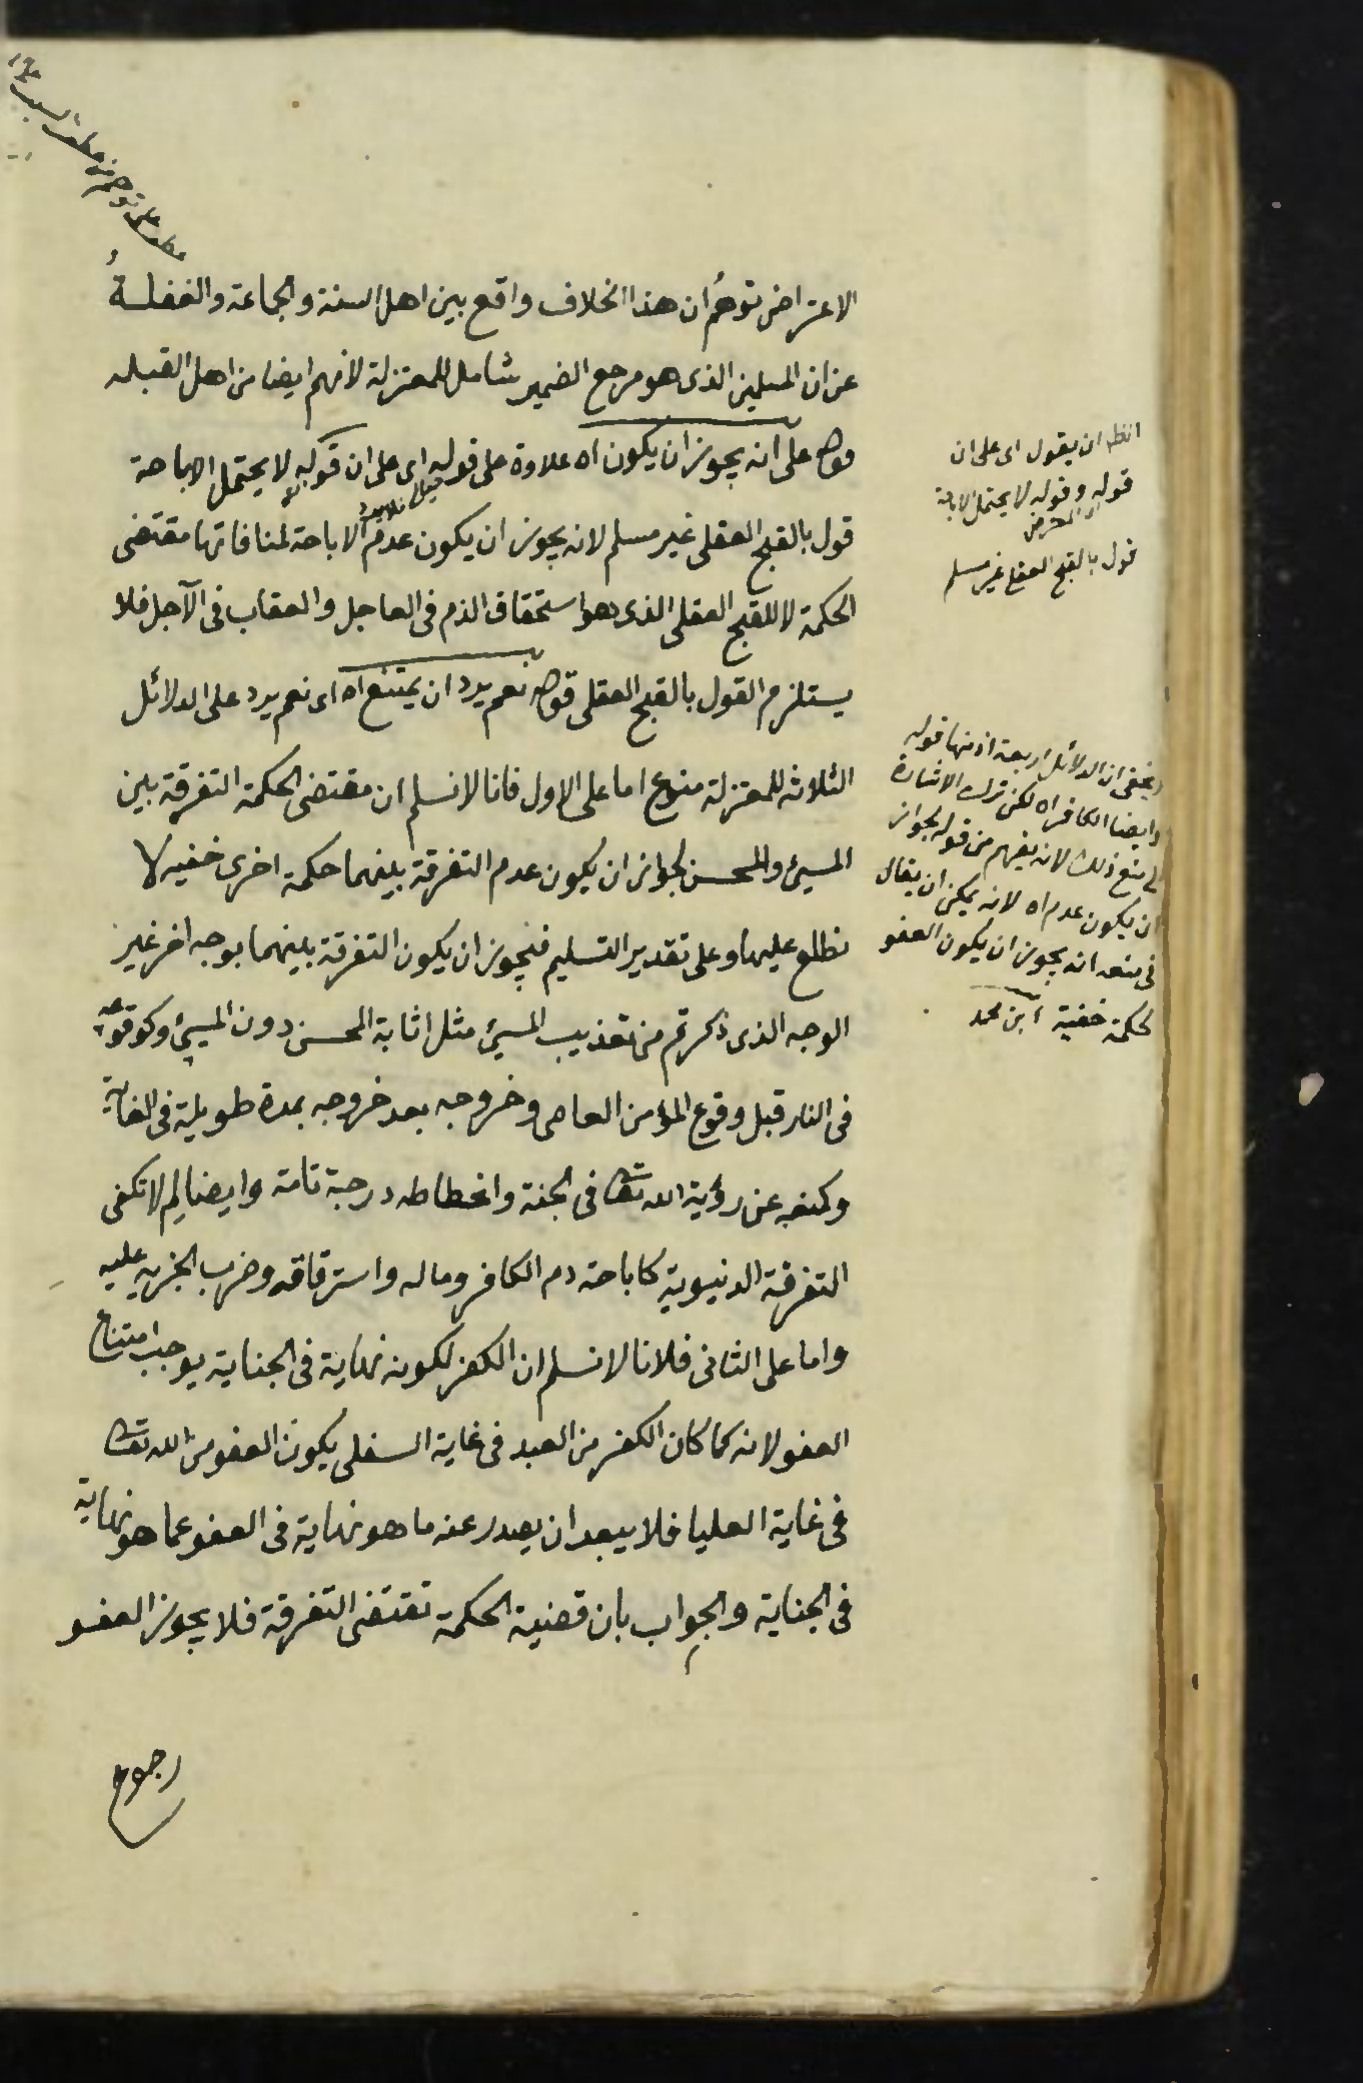 عطف على توهم من عطف السبب
الاعتراض توهُّم ان هذا الخلاف واقع بين اهل السنة والجماعة والغفلةُ
عن ان المسلمين الذى هو مرجع الضمير شامل للمعتزلة لانهم ايضا من اهل القبله
قوله على انه يجوز ان يكون اه علاوة على قوله اى على ان قوله لا يحتمل الاباحة
قول بالقبح العقلى غير مسلم لانه يجوز ان يكون عدم الاباحة لمنافاتها مقتضى
الحكمة لا للقبح العقلى الذى هو استحقاق الذم فى العاجل والعقاب فى الآجل فلا
يستلزم القول بالقبح العقلى قوله نعم يرد ان يمتنع اه اى نعم يرد على الدلائل
الثلاثه للمعتزلة منوع اما على الاول فانا لا نسلم ان مقتضى الحكمة التفرقة بين
المسيئ والمحسن لجواز ان يكون عدم التفرقة بينهما حكمة اخرى خفيه لا
نطلع عليها وعلى تقدير التسليم فيجوز ان يكون التفرقة بينهما بوجه اخر غير
الوجه الذى ذكرتم من تعذيب المسيئ مثل اثابة المحسن دون المسيئ وكوقوعه
فى النار قبل وقوع المؤمن العاصى وخروجه بعد خروجه بمدة طويلة فى الغاية
وكمنعه عن رؤية الله تعالى فى الجنة وانحطاطه درجة تامة وايضا لِم لا تكفى
التفرقة الدنيوية كاباحة دم الكافر وماله واسترقاقه وضرب الجزيه عليه
واما على الثانى فلانا لا نسلم ان الكفر لكونه نهاية فى الجناية يوجب امتناع
العفو لانه كما كان الكفر من العبد فى غاية السفلى يكون العفو من الله تعالى
فى غاية العليا فلا يبعد ان يصدر عنه ما هو نهاية فى العفو عما هو نهاية
فى الجناية والجواب بان قضية الحكمة تقتضى التفرقة فلا يجوز العفو
رجوع
انظر ان يقول اى على ان
قوله وقوله لا يحتمل الاباحة
قول بالقبح العقلى غير مسلم
يخفى ان الدلائل اربعة اذ منها قوله
وايضا الكافر اه لكن ترك الاشارة
الى منع ذلك لانه يفهم من قوله لجواز
ان يكون عدم اه لانه يمكن ان يقال
فى منعه انه يجوز ان يكون العفو
لحكمة خفية ابن محمد